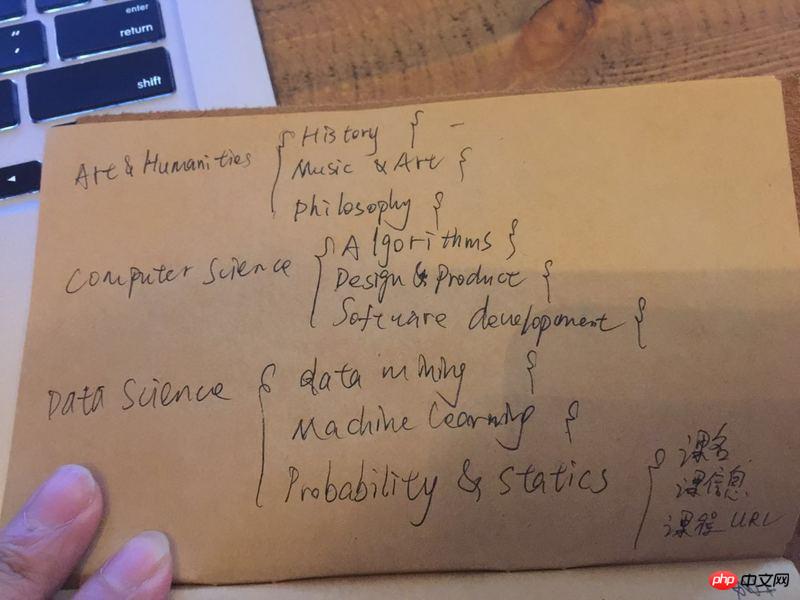 enter
return
shift
Art & Humanities { History { –
Music & Art {
Philosophy {
Computer Science { Algorithms }
Design & Product {
Software development {
Data Science { data mining {
Machine Learning {
Probability & Statics { 课名
课信息
课程 URL
php 中文网